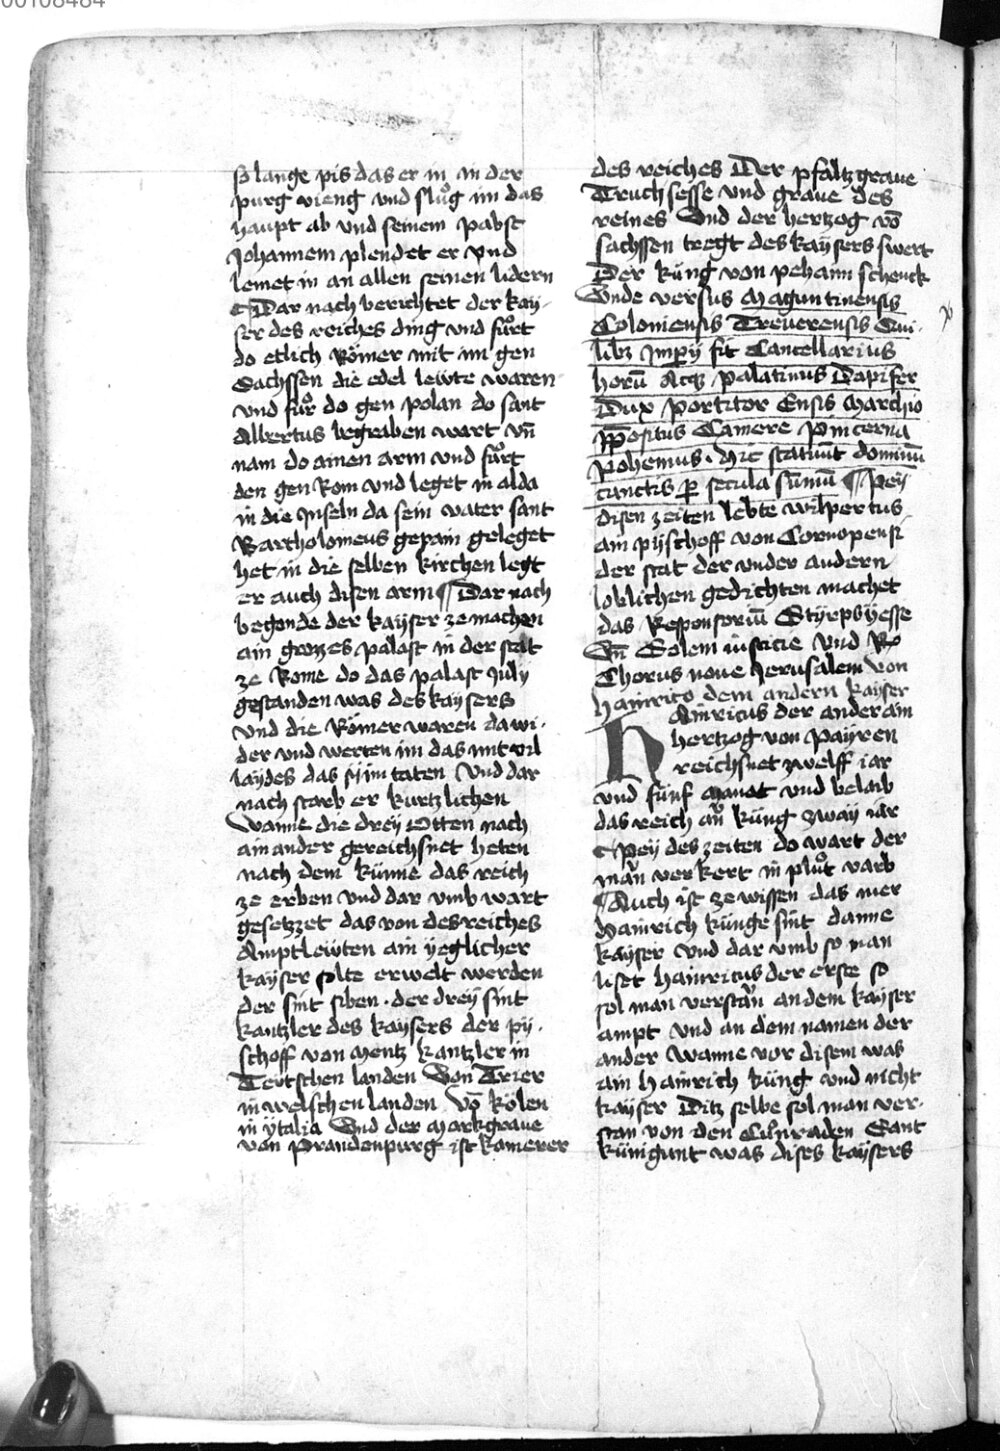 00108484
so lange pis das er in in der
purg vieng vnd slůg im das
haupt ab vnd seinem pabst
Johannem plendet er vnd
lemet in an allen seinen lidern
¶ Dar nach berichtet der kay-
ser des reiches ding vnd fůrt
do etlich Römer mit im gen
Sachssen die edel lewte waren
vnd fůr do gen polan do sant
Albertus begraben wart vn̄
nam do ainen arm vnd fůrt
den gen Rom vnd leget in alda
in die Inseln da sein vater sant
Bartholomeus gepain geleget
het in die selben kirchen legt
er auch disen arm ¶ Dar nach
begonde der kayser ze machen
ain grozzes palast in der stat
ze Rome do das palast July
gestanden was des kaysers
Vnd die Römer waren da wi-
der vnd werten im das mit vil
laydes das sy im taten Vnd dar
nach starb er kurtzlichen
Wanne die drey Otten nach
ain ander gereichsnet heten
nach dem künne das reich
ze erben vnd dar vmb wart
gesetzzet das von des reiches
Amptlewten ain yeglicher
kayser solte erwelt werden
der sint siben · der drey sint
kantzler des kaysers der py-
schoff von Mentz kantzler in
Tewtschen landen Von Trier
in welschen landen Vō Kölen
in ytalia Vnd der Markgraue
von Prandenpurg ist kamerer
des reiches Der pfaltzgraue
Truchsesse vnd graue des
reines Vnd der hertzog vō
sachssen tregt des kaysers swert
Der küng von pehaim schenck
Vnde versus Maguntinensis
Coloniensis Treuerensis Qui-
libz Impy fit Cancellarius
horū Atqz palatinus Dapifer
Dux portitor Ensis Marchio
ppositus Camere Pincerna
Pohemus · Hic statuūt dominū
cunctis ꝑ secula sūmū ¶ Pey
disen zeiten lebte wilpertus
ain pyschoff von Cornopensi
der stat der vnder andern
loblichen gedichten machet
das Responsoriū Styrps yesse
Vn̄ Solem iusticie Vnd
Chorus noue Jerusalem von
hainrico dem andern kayser
Hainricus der ander ain
hertzog von Payren
reichsnet zwelff iar
vnd fünf manat vnd belaib
das reich an küng zway iar
¶ Pey des zeiten do wart der
man verkert in plůt varb
¶ Auch ist ze wissen das mer
Hainrich künge sint danne
kayser Vnd dar vmb so man
liset hainricus der erste so
sol man verstan an dem kayser
ampt vnd an dem namen der
ander Wanne vor disem was
ain hainrich küng vnd nicht
kayser Ditz selbe sol man ver-
stan von den Cůnraden Sant
küngunt was dises kaysers